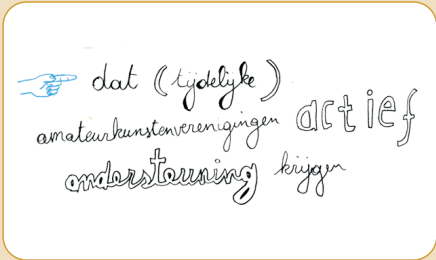 dat (tijdelijke)
amateurkunstenverenigingen actief
ondersteuning krijgen